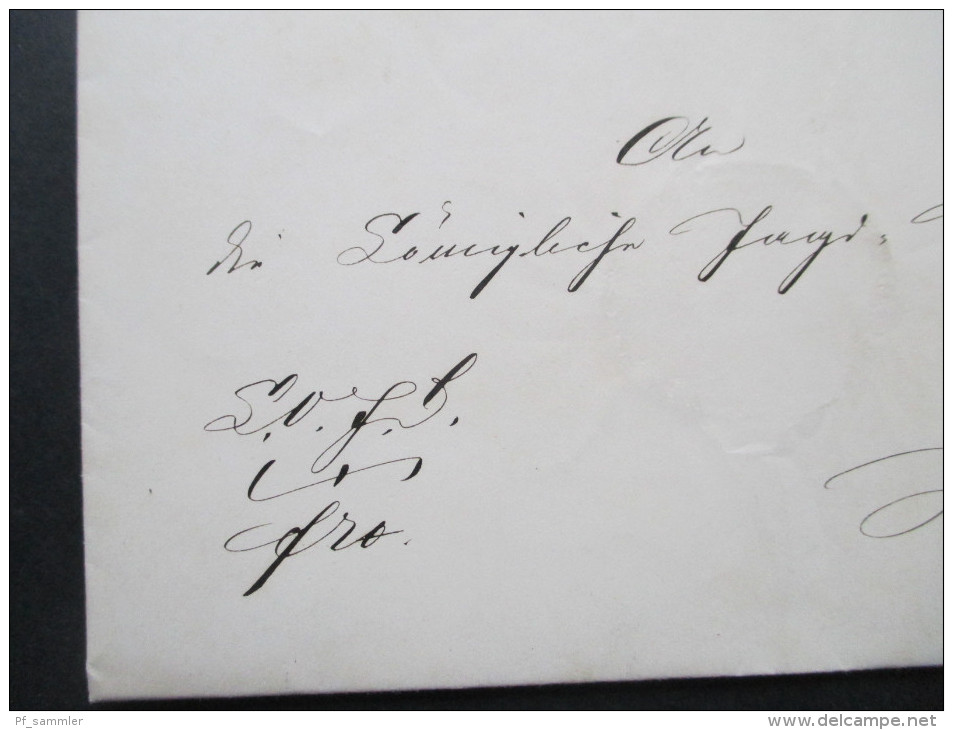 An
die Königliche Jagd-
K. O. J. B.
fro.
Pf_sammler
www.delcampe.net